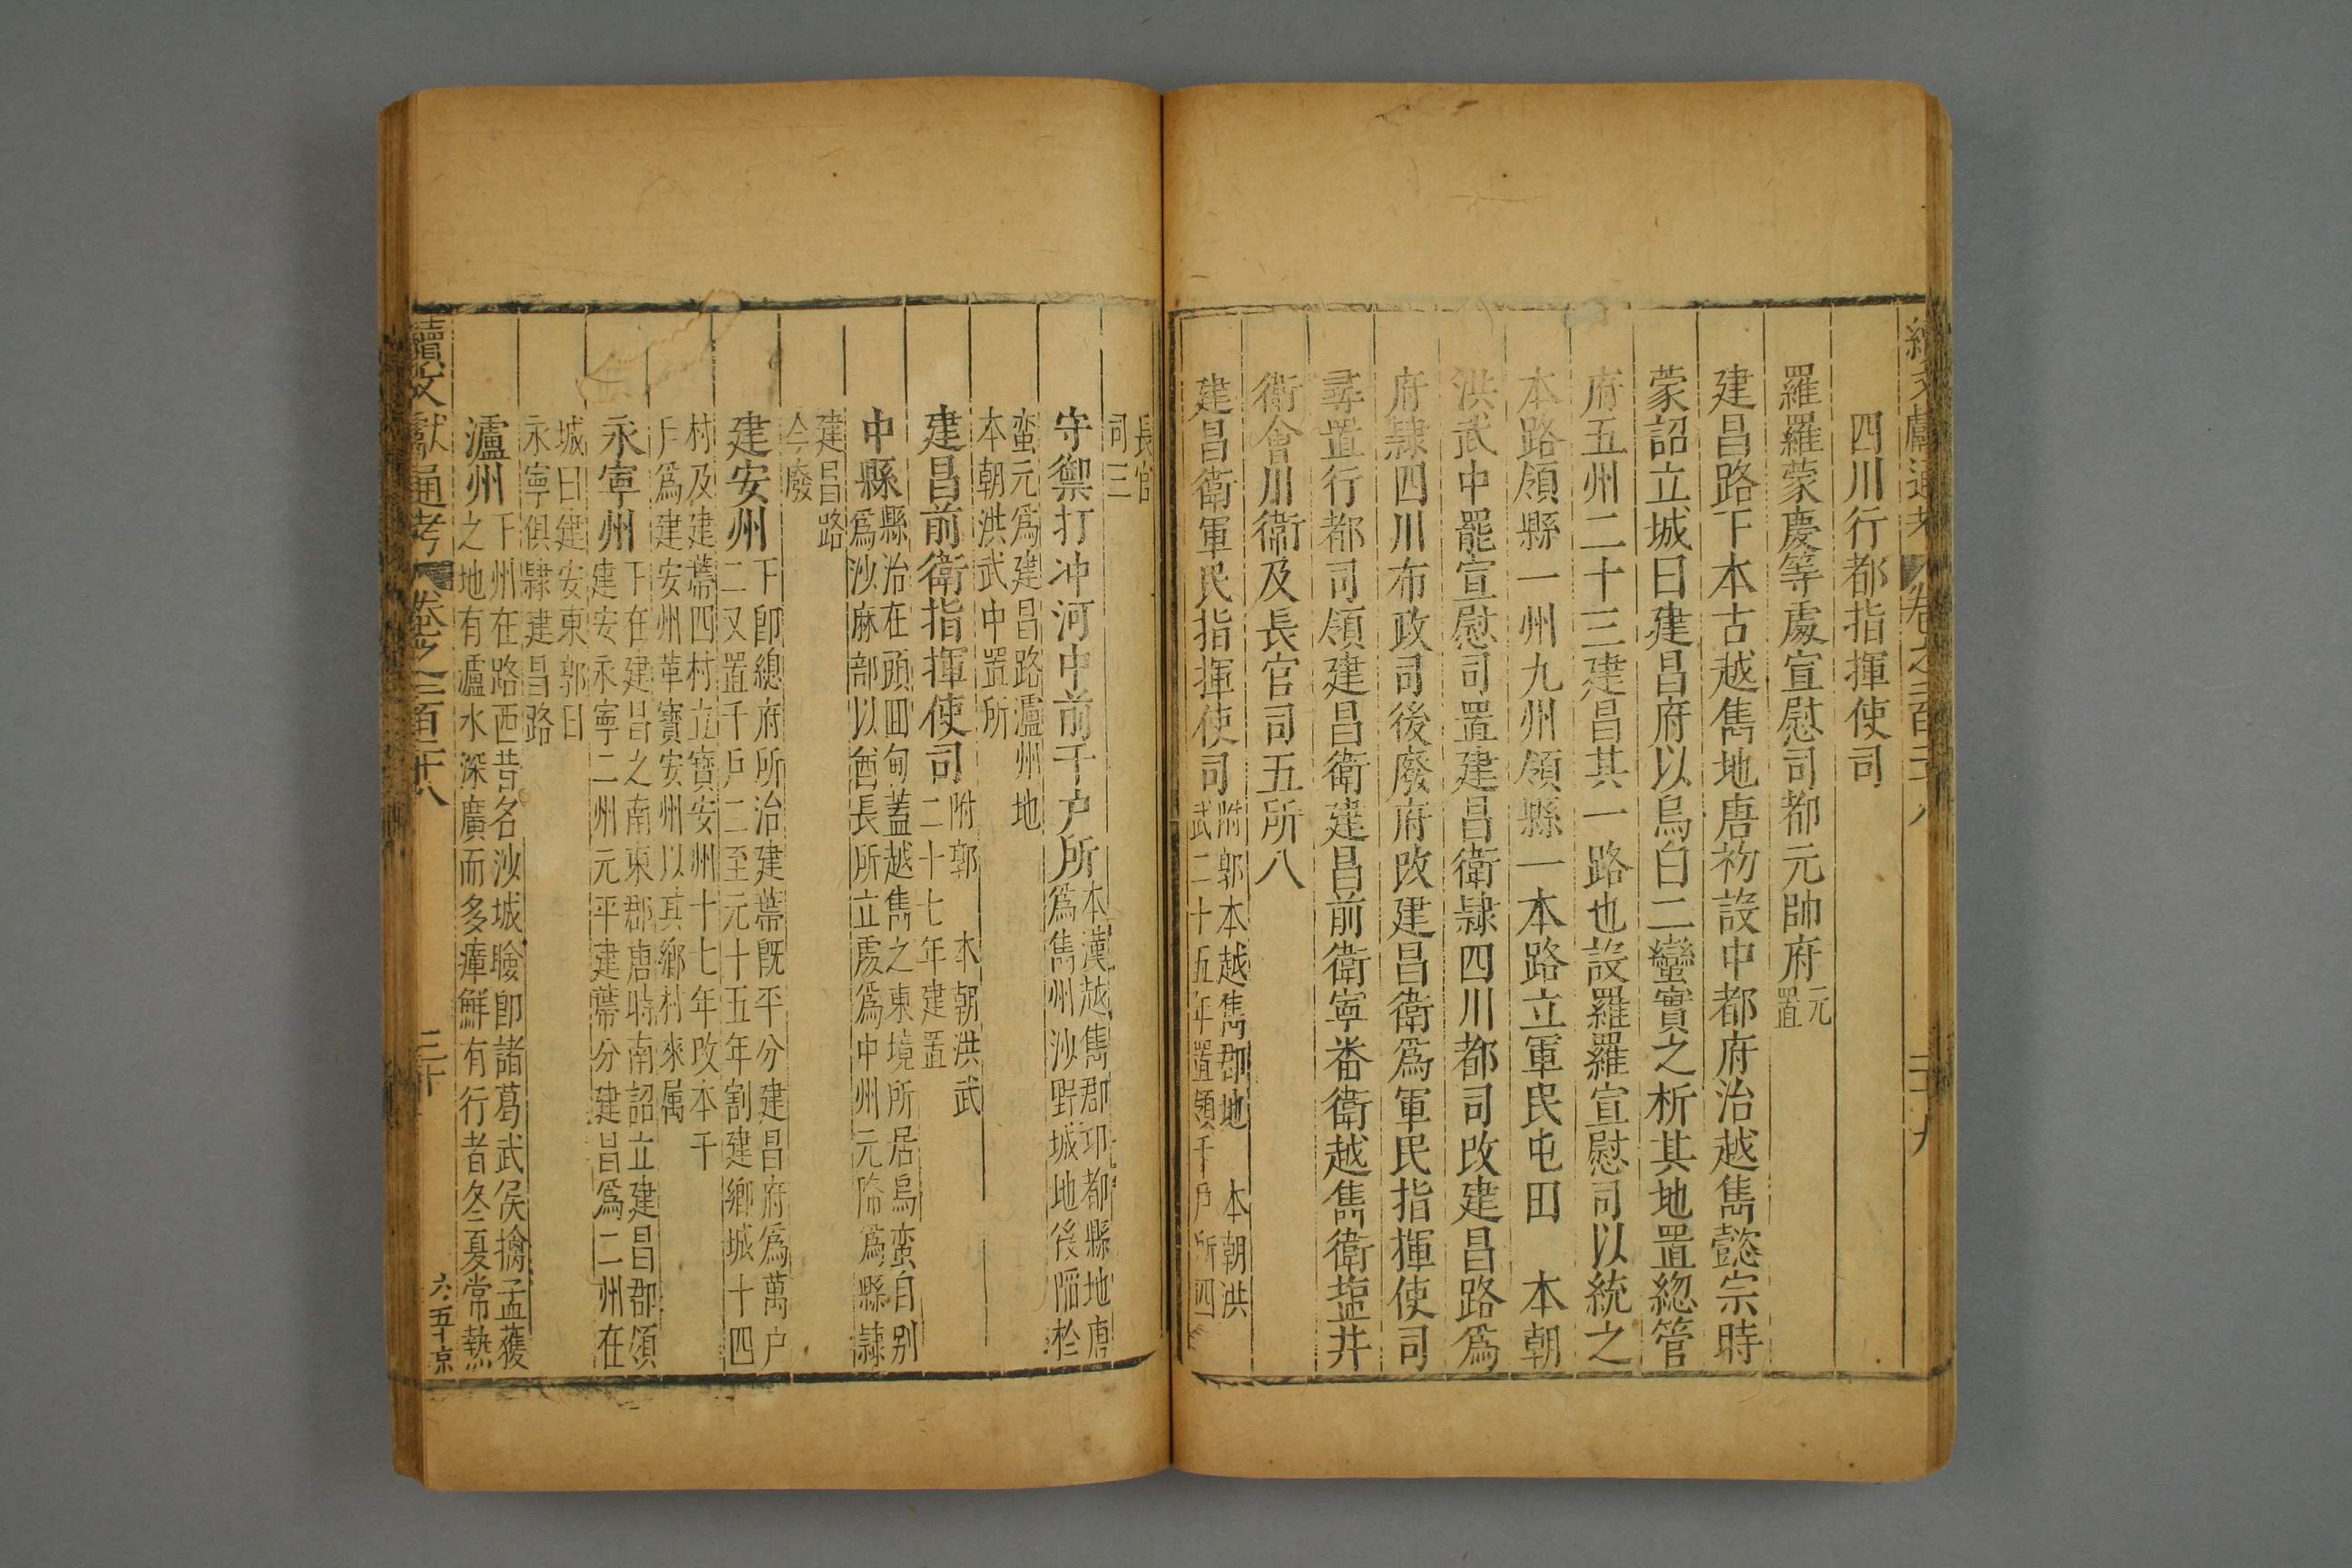 續文獻通考 卷之二百二十八 二十九
四川行都指揮使司
羅羅蒙慶等處宣慰司都元帥府元置
建昌路下本古越雋地唐初設中都府治越雋懿宗時
蒙詔立城曰建昌府以烏白二蠻實之析其地置總管
府五州二十三建昌其一路也設羅羅宣慰司以統之
本路領縣一州九州領縣一本路立軍民屯田 本朝
洪武中罷宣慰司置建昌衛隸四川都司改建昌路爲
府隸四川布政司後廢府改建昌衛爲軍民指揮使司
尋置行都司領建昌衛建昌前衛寧番衛越雋衛塩井
衛會川衛及長官司五所八
建昌衛軍民指揮使司附郭本越雋郡地 本朝洪
武二十五年置領千戶所四
長官
司三
守禦打冲河中前千户所本漢越雋郡邛都縣地唐
爲雋州沙野城地後陷於
蛮元爲建昌路瀘州地
本朝洪武中置所
建昌前衛指揮使司附郭 本朝洪武
二十七年建置
中縣縣治在頭回甸蓋越雋之東境所居烏蛮自别
爲沙麻部以酋長所立處爲中州元陞爲縣隸
建昌路
今廢
建安州下卽總府所治建蔕旣平分建昌府爲萬户
二又置千戶二至元十五年割建鄉城十四
村及建蔕四村立寶安州十七年改本千
戶爲建安州革寶安州以其鄉村來属
永寧州下在建昌之南東郡唐時南詔立建昌郡領
建安永寧二州元平建蔕分建昌爲二州在
城曰建安東郭曰
永寧俱隸建昌路
瀘州下州在路西昔名沙城瞼卽諸葛武侯擒孟獲
之地有瀘水深廣而多瘴鮮有行者冬夏常熱
續文獻通考 卷之二百二十八 三十
六五十京